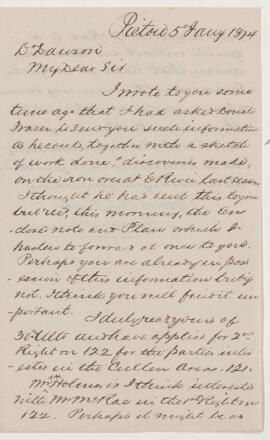 Pictou 5th Jany 1874
Dr Dawson
My Dear Sir
I wrote to you some
time ago that I had asked Donald
Fraser to send you such information
as he could, together with a sketch
of work done & discoveries made,
on the iron ores at E River last season
I thought he had sent this to you
but recd, this morning, the
note and Plan which I
hasten to forward at once to you.
Perhaps you are already in poss
ession of this information but if
not. I think you will find it im
portant.
I duly recd yours of
30th Ulto and have applied for 2nd
Right on 122 for the parties inter
ested in the Cullen Area. 121.
Mr Holmes is I think interested
with Mr McRae in the Right on
122. Perhaps it might be as